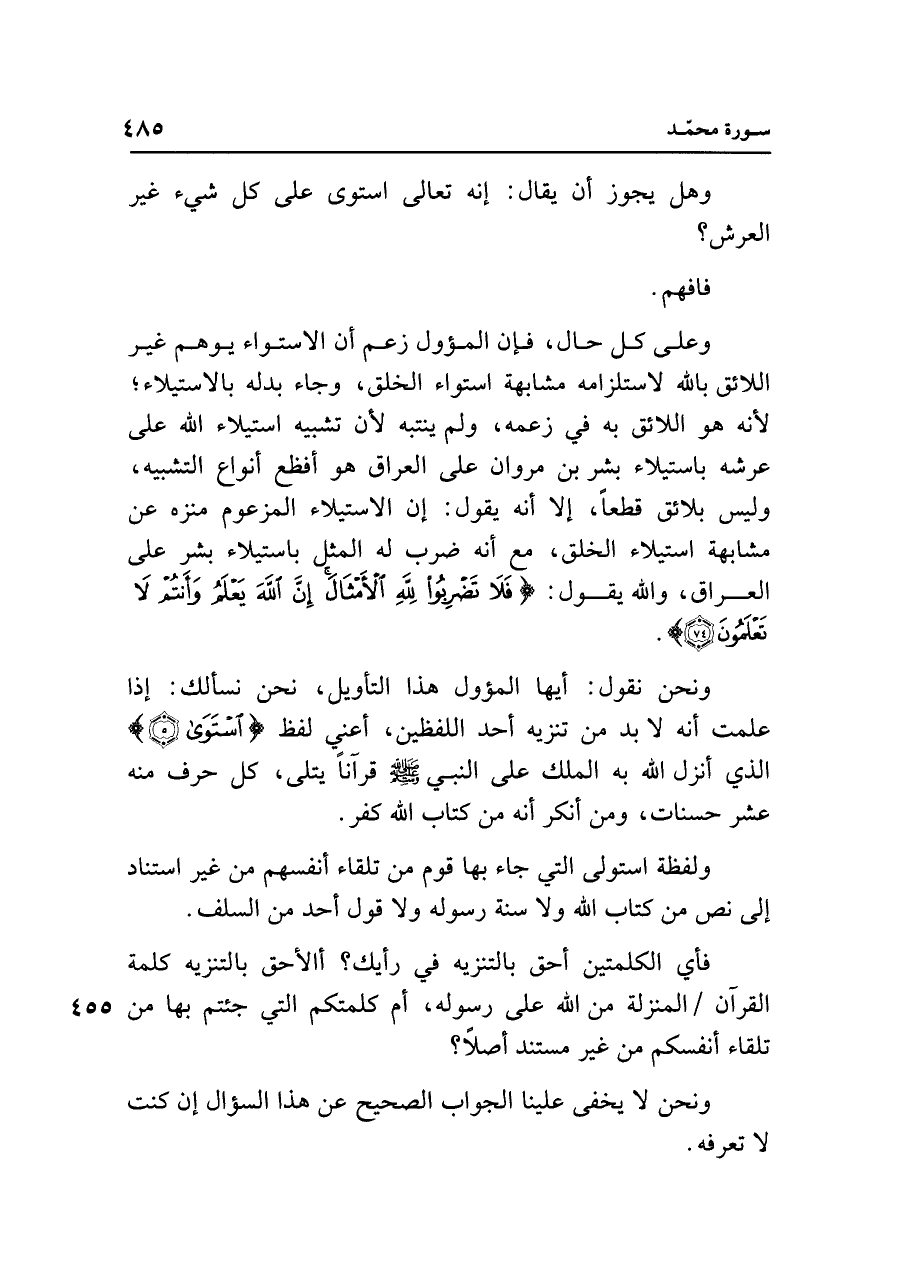 سورة محمّد ٤٨٥
وهل يجوز أن يقال: إنه تعالى استوى على كل شيء غير
العرش؟
فافهم.
وعلى كل حال، فإن المؤول زعم أن الاستواء يوهم غير
اللائق بالله لاستلزامه مشابهة استواء الخلق، وجاء بدله بالاستيلاء؛
لأنه هو اللائق به في زعمه، ولم ينتبه لأن تشبيه استيلاء الله على
عرشه باستيلاء بشر بن مروان على العراق هو أفظع أنواع التشبيه،
وليس بلائق قطعاً، إلا أنه يقول: إن الاستيلاء المزعوم منزه عن
مشابهة استيلاء الخلق، مع أنه ضرب له المثل باستيلاء بشر على
العراق، والله يقول: ﴿فَلَا تَضْرِبُوا۟ لِلَّهِ ٱلْأَمْثَالَ ۚ إِنَّ ٱللَّهَ يَعْلَمُ وَأَنتُمْ لَا
تَعْلَمُونَ ٧٤﴾.
ونحن نقول: أيها المؤول هذا التأويل، نحن نسألك: إذا
علمت أنه لا بد من تنزيه أحد اللفظين، أعني لفظ ﴿ٱسْتَوَىٰ ٥﴾
الذي أنزل الله به الملك على النبي ﷺ قرآناً يتلى، كل حرف منه
عشر حسنات، ومن أنكر أنه من كتاب الله كفر.
ولفظة استولى التي جاء بها قوم من تلقاء أنفسهم من غير استناد
إلى نص من كتاب الله ولا سنة رسوله ولا قول أحد من السلف.
فأي الكلمتين أحق بالتنزيه في رأيك؟ أالأحق بالتنزيه كلمة
القرآن /المنزلة من الله على رسوله، أم كلمتكم التي جئتم بها من ٤٥٥
تلقاء أنفسكم من غير مستند أصلاً؟
ونحن لا يخفى علينا الجواب الصحيح عن هذا السؤال إن كنت
لا تعرفه.